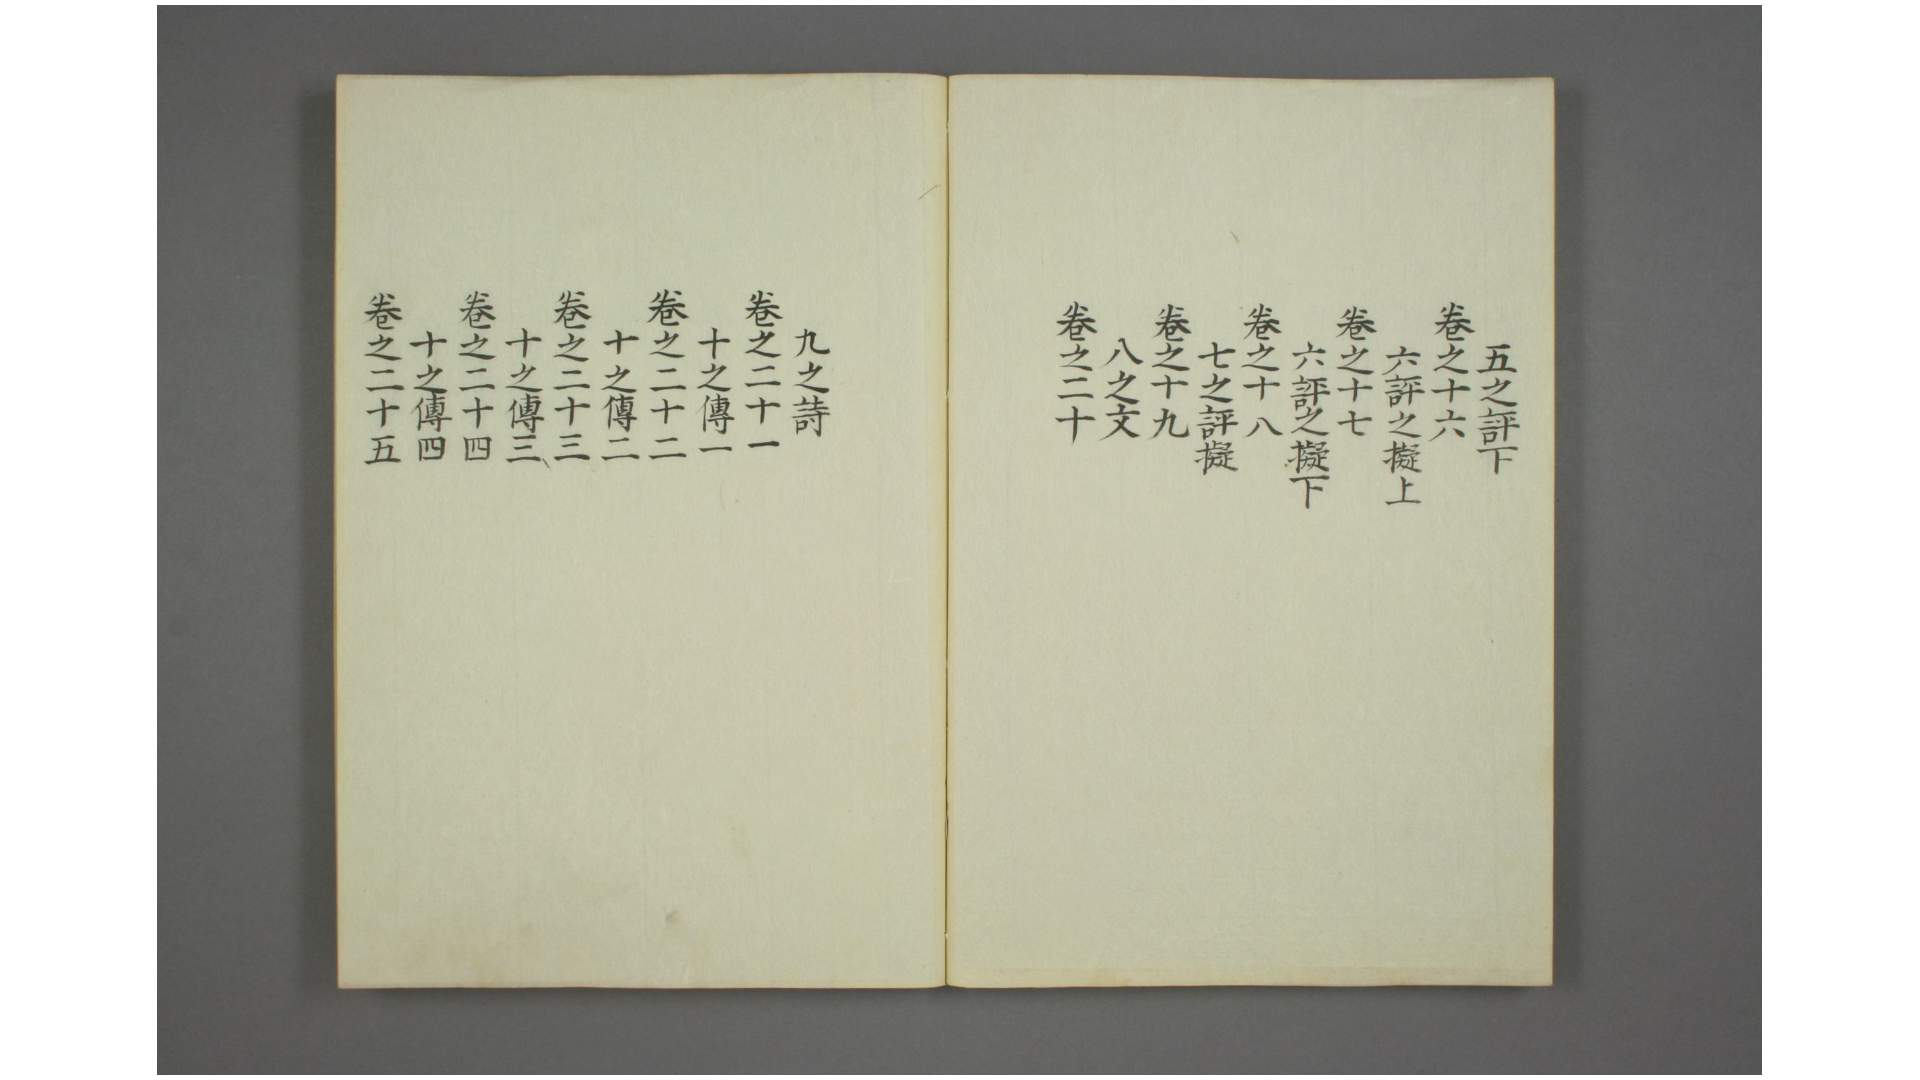 五之評下
卷之十六
六評之擬上
卷之十七
六評之擬下
卷之十八
七之評擬
卷之十九
八之文
卷之二十
九之詩
卷之二十一
十之傳一
卷之二十二
十之傳二
卷之二十三
十之傳三
卷之二十四
十之傳四
卷之二十五